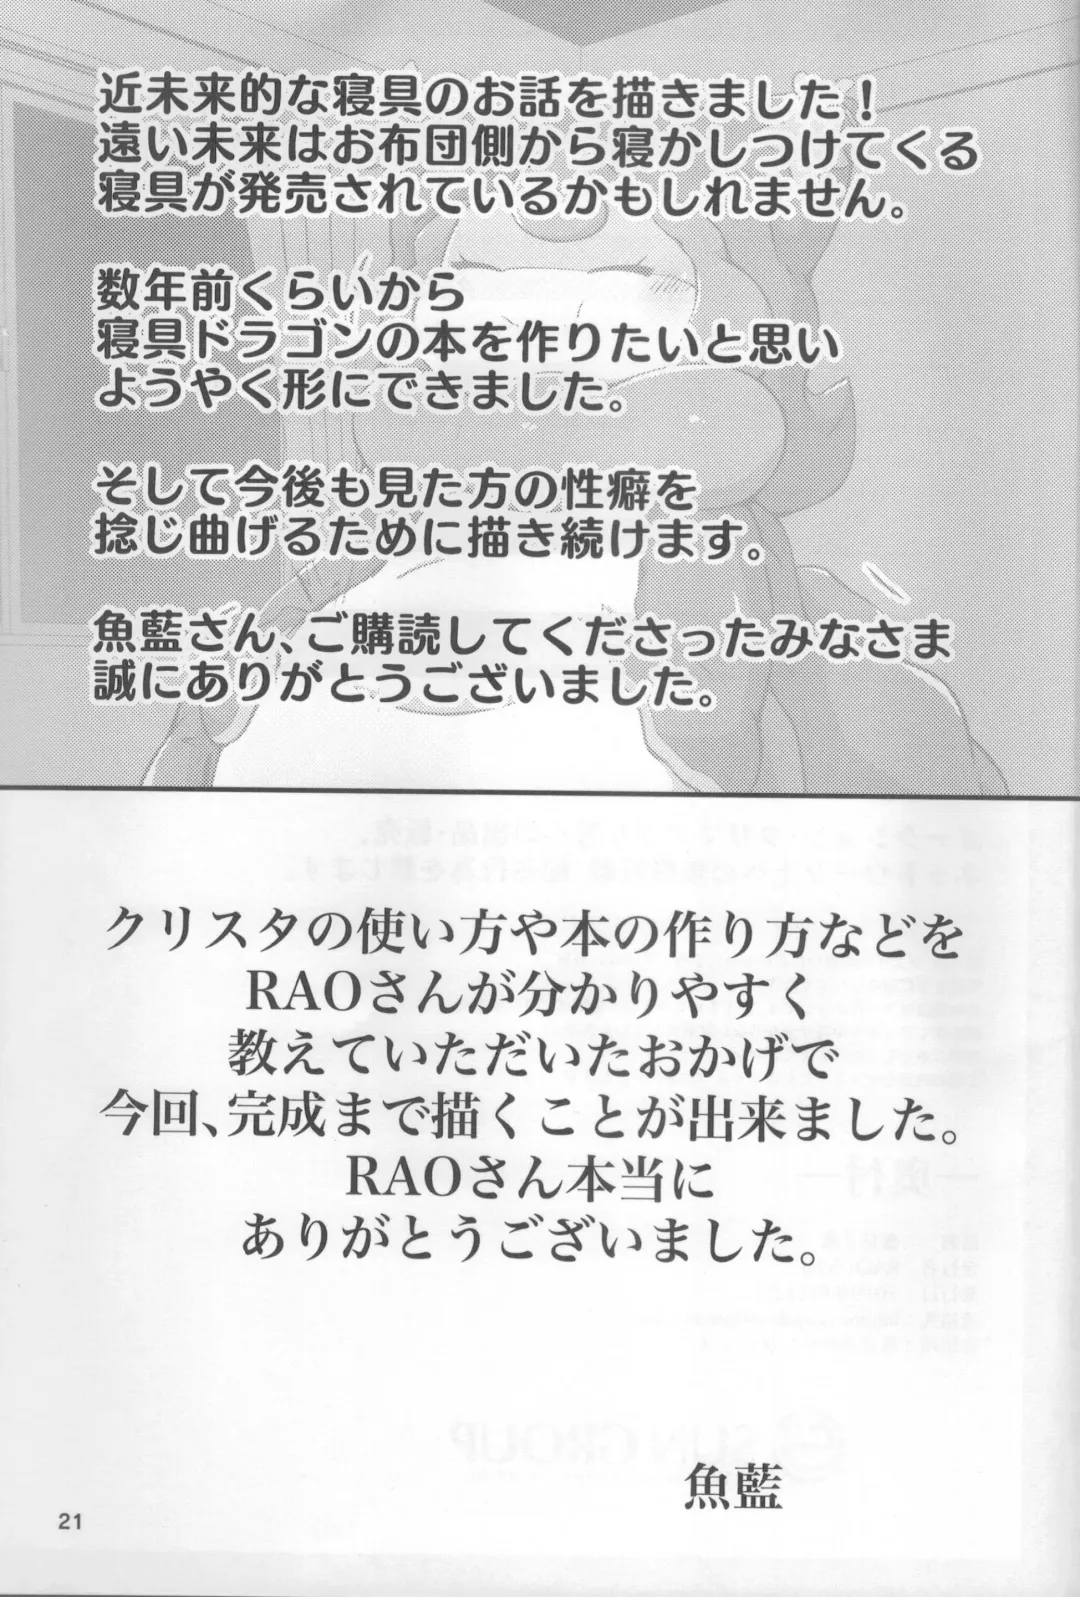 近未来的な寝具のお話を描きました！
遠い未来はお布団側から寝かしつけてくる
寝具が発売されているかもしれません。
数年前くらいから
寝具ドラゴンの本を作りたいと思い
ようやく形にできました。
そして今後も見た方の性癖を
捻じ曲げるために描き続けます。
魚藍さん、ご購読してくださったみなさま
誠にありがとうございました。
クリスタの使い方や本の作り方などを
RAOさんが分かりやすく
教えていただいたおかげで
今回、完成まで描くことが出来ました。
RAOさん本当に
ありがとうございました。
魚藍
21